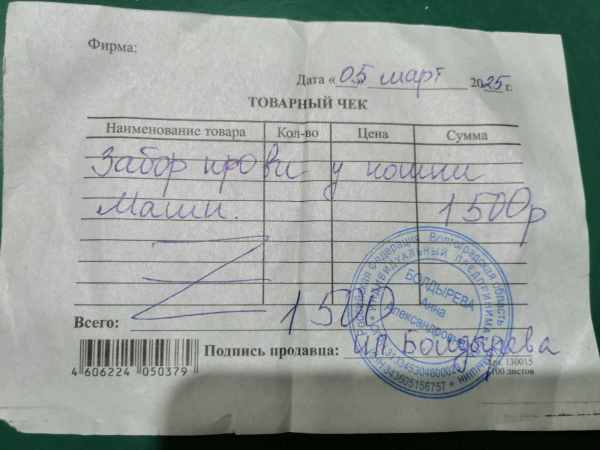 Фирма:
Дата «05» март 2025 г.
ТОВАРНЫЙ ЧЕК
Наименование товара Кол-во Цена Сумма
Забор крови у кошки
Маши. 1500р
Всего: 1500
Подпись продавца: ИП Болдырева
4 606224 050379
Арт. 130015
100 листов
Волгоградская область
ИНДИВИДУАЛЬНЫЙ ПРЕДПРИНИМАТЕЛЬ
БОЛДЫРЕВА
Анна
Александровна